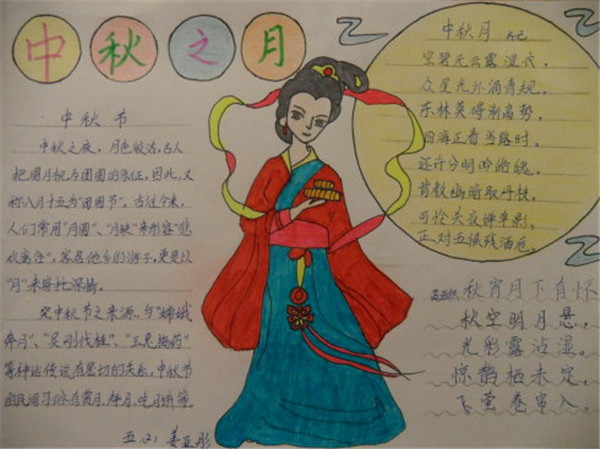 中秋之月
中秋节
中秋之夜，月色皎洁，古人
把圆月视为团圆的象征，因此，又
称八月十五为"团圆节"。古往今来，
人们常用"月圆"、"月缺"来形容"悲
欢离合"，客居他乡的游子，更是以
"月"来寄托深情。
究中秋节之来源，与"嫦娥
奔月"、"吴刚伐桂"、"玉兔捣药"
等神话传说有密切的关系，中秋节
的民间习俗有赏月、拜月、吃月饼等
五（2） 姜亚彤
中秋月 齐己
空碧无云露湿衣，
众星光外涌清规。
东林莫碍渐高势，
四海正看当路时。
还许分明吟皓魄，
肯教幽暗取丹枝。
可怜关夜婵娟影，
正对五侯残酒卮。
孟浩然 秋宵月下有怀
秋空明月悬，
光彩露沾湿。
惊鹊栖未定，
飞萤卷帘入。